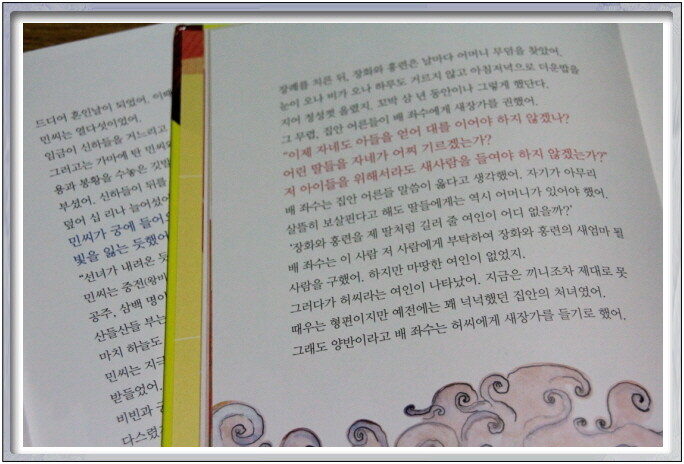 드디어 혼인날이 되었어. 아빠
민씨는 열다섯이었어.
임금이 신하들을 거느리고
그러고는 가마에 탄 민씨와
용과 봉황을 수놓은 깃발
부셨어. 신하들이 뒤를
덮어 십 리나 늘어섰어
민씨가 궁에 들어오
빛을 잃는 듯했어
"선녀가 내려온 듯
민씨는 중전(왕비
공주, 삼백 명이
산들산들 부는
마치 하늘도
민씨는 지극
받들었어.
비빈과 궁
다스렸고
장례를 치른 뒤, 장화와 홍련은 날마다 어머니 무덤을 찾았어.
눈이 오나 비가 오나 하루도 거르지 않고 아침저녁으로 더운밥을
지어 정성껏 올렸지. 꼬박 삼 년 동안이나 그렇게 했단다.
그 무렵, 집안 어른들이 배 좌수에게 새장가를 권했어.
"이제 자네도 아들을 얻어 대를 이어야 하지 않겠나?
어린 딸들을 자네가 어찌 기르겠는가?
저 아이들을 위해서라도 새사람을 들여야 하지 않겠는가?"
배 좌수는 집안 어른들 말씀이 옳다고 생각했어. 자기가 아무리
살뜰히 보살핀다고 해도 딸들에게는 역시 어머니가 있어야 했어.
'장화와 홍련을 제 딸처럼 길러 줄 여인이 어디 없을까?'
배 좌수는 이 사람 저 사람에게 부탁하여 장화와 홍련의 새엄마 될
사람을 구했어. 하지만 마땅한 여인이 없었지.
그러다가 허씨라는 여인이 나타났어. 지금은 끼니조차 제대로 못
때우는 형편이지만 예전에는 꽤 넉넉했던 집안의 처녀였어.
그래도 양반이라고 배 좌수는 허씨에게 새장가를 들기로 했어.